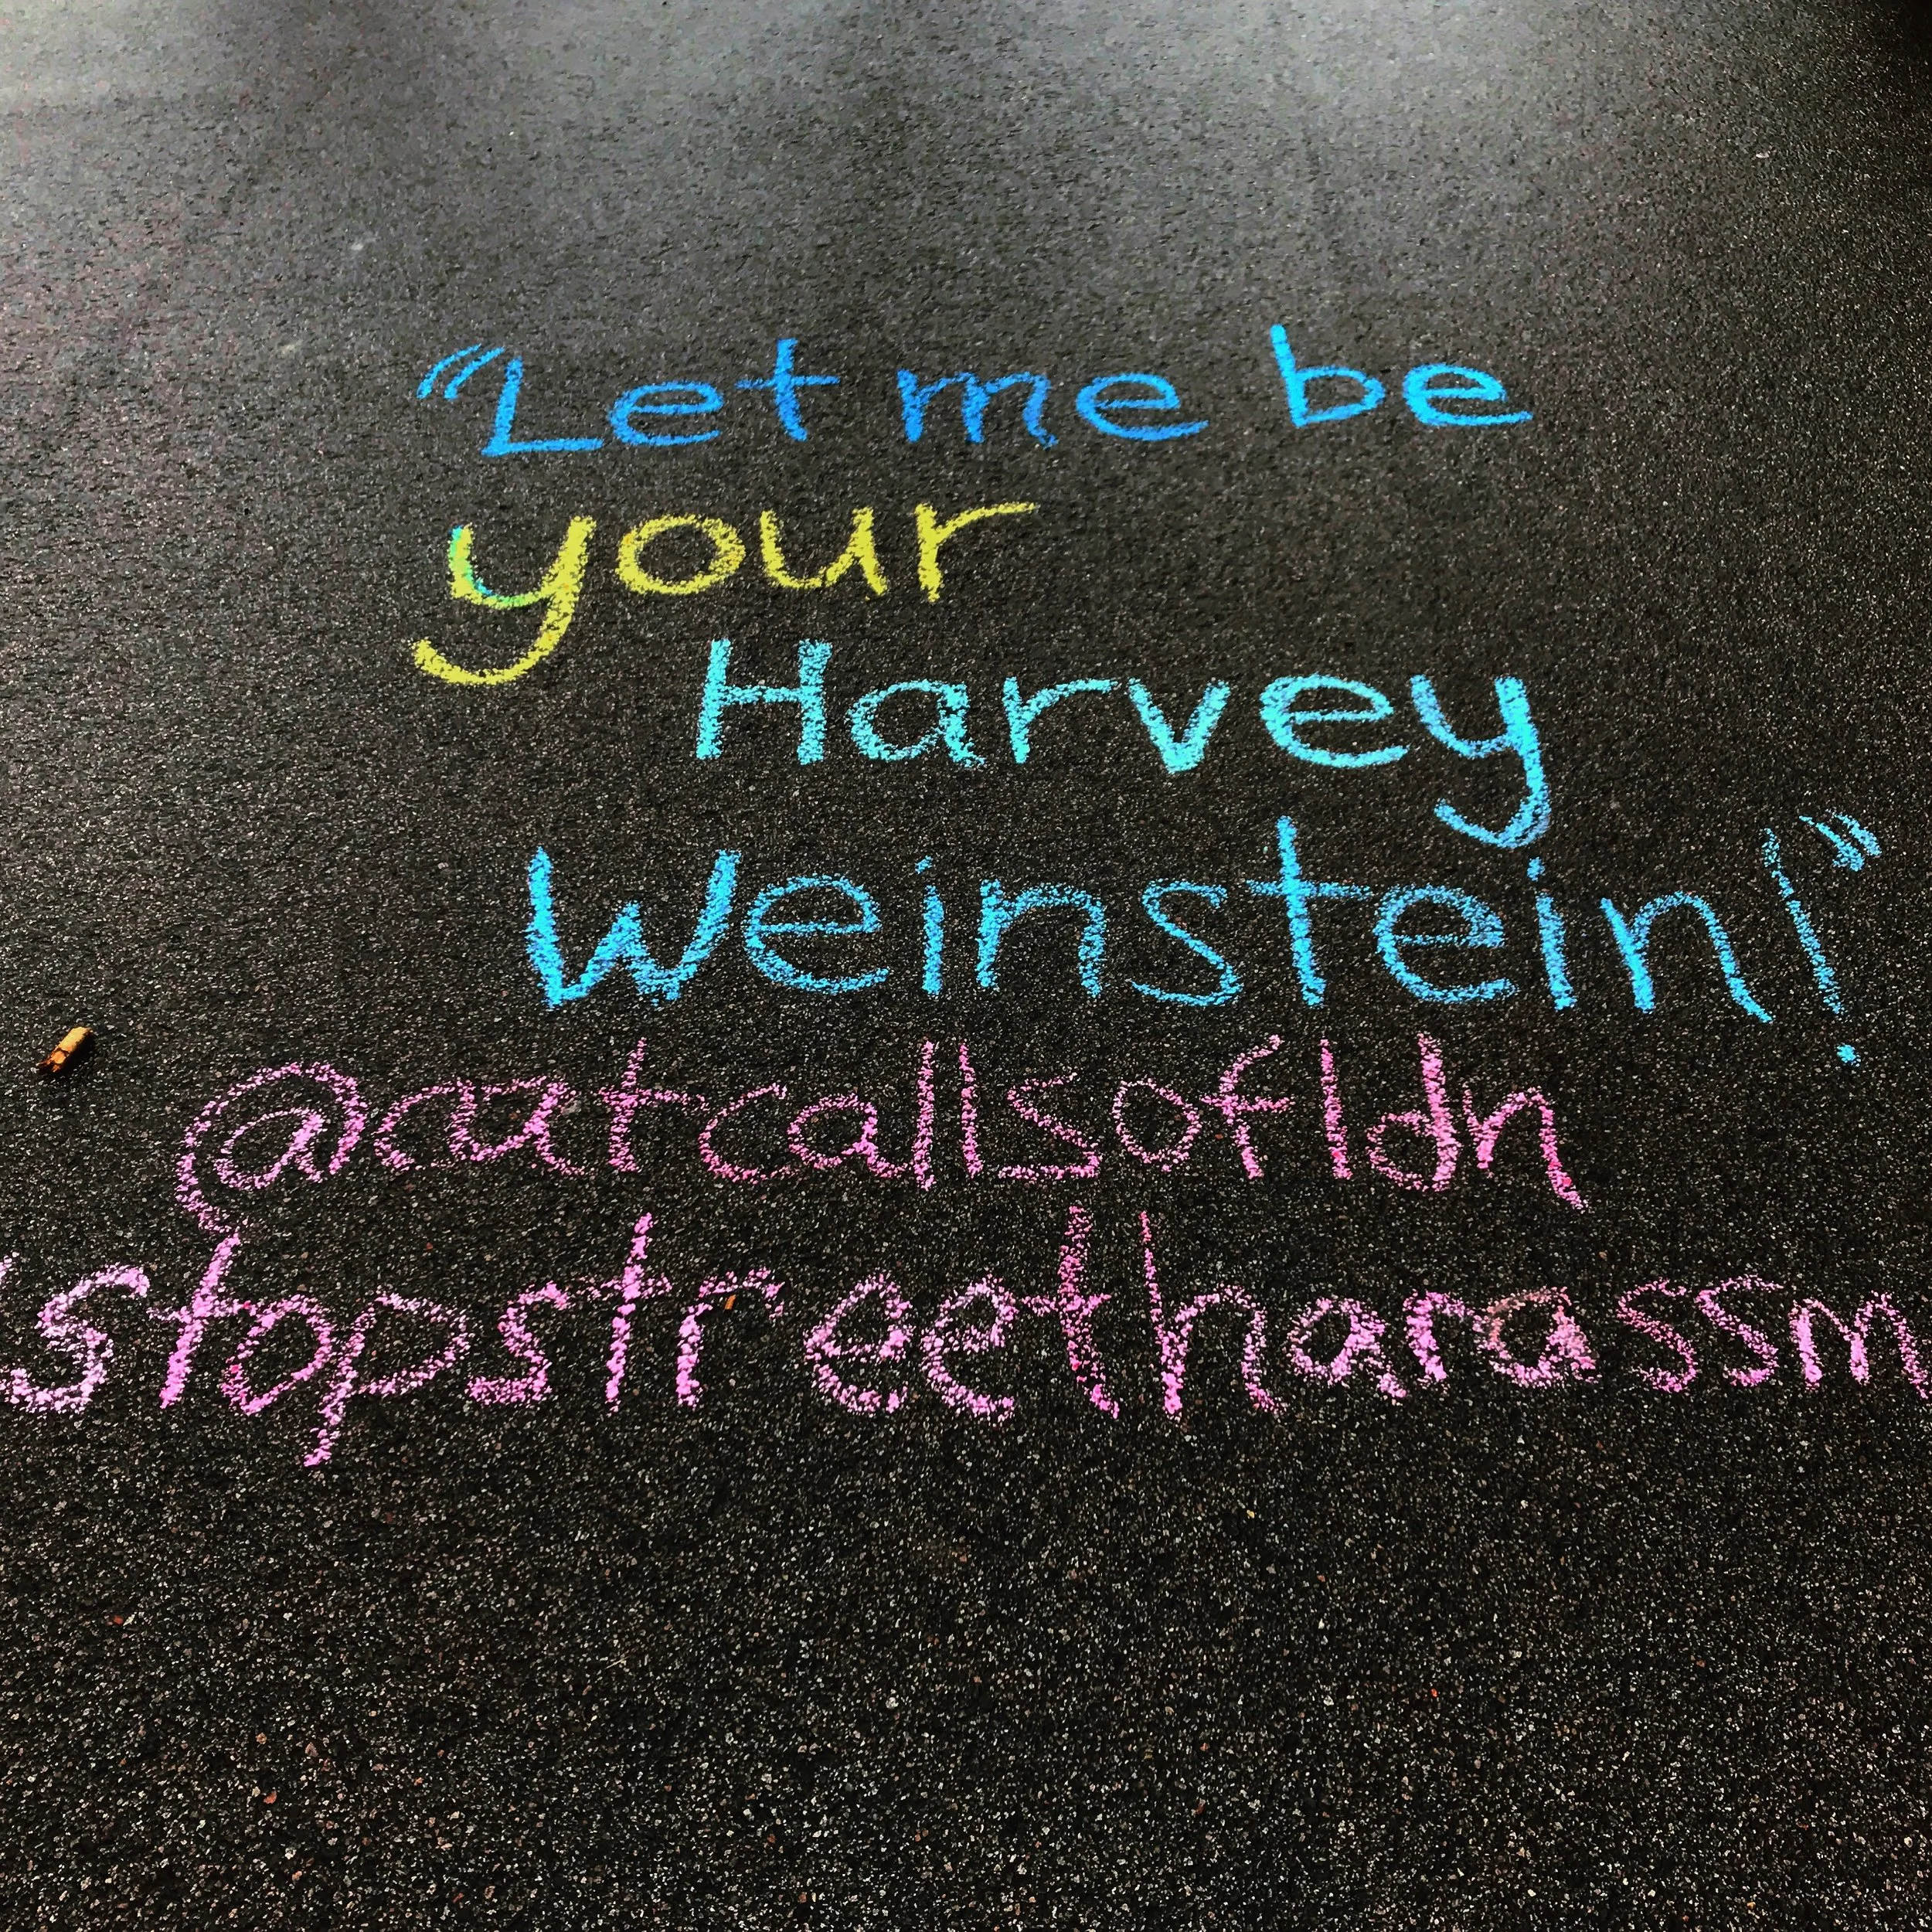 "Let me be
your
Harvey
Weinstein!"
@catcallsofldn
stopstreetharassm